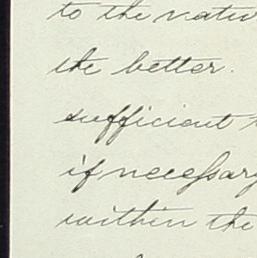 to the
the better.
sufficient
if necessary
within the